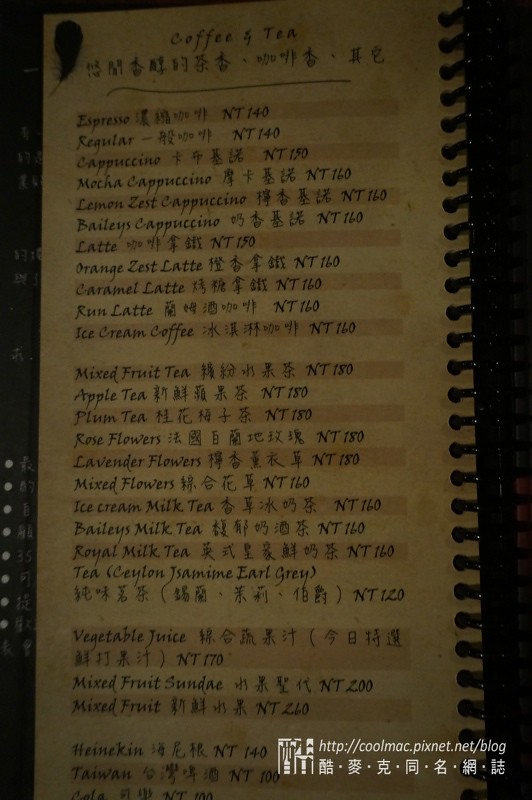 Coffee & Tea
悠閒香醇的茶香、咖啡香、其它
Espresso 濃縮咖啡 NT 140
Regular 一般咖啡 NT 140
Cappuccino 卡布基諾 NT 150
Mocha Cappuccino 摩卡基諾 NT 160
Lemon Zest Cappuccino 檸香基諾 NT 160
Baileys Cappuccino 奶香基諾 NT 160
Latte 咖啡拿鐵 NT 150
Orange Zest Latte 橙香拿鐵 NT 160
Caramel Latte 烤糖拿鐵 NT 160
Run Latte 蘭姆酒咖啡 NT 160
Ice Cream Coffee 冰淇淋咖啡 NT 160
Mixed Fruit Tea 繽紛水果茶 NT 180
Apple Tea 新鮮蘋果茶 NT 180
Plum Tea 桂花梅子茶 NT 180
Rose Flowers 法國百蘭地玫瑰 NT 180
Lavender Flowers 檸香薰衣草 NT 180
Mixed Flowers 綜合花草 NT 160
Ice cream Milk Tea 香草冰奶茶 NT 160
Baileys Milk Tea 馥郁奶酒茶 NT 160
Royal Milk Tea 英式皇家鮮奶茶 NT 160
Tea (Ceylon Jsamime Earl Grey)
純味茗茶（錫蘭、茉莉、伯爵）NT 120
Vegetable Juice 綜合蔬果汁（今日特選
鮮打果汁）NT 170
Mixed Fruit Sundae 水果聖代 NT 200
Mixed Fruit 新鮮水果 NT 260
Heinekin 海尼根 NT 140
Taiwan 台灣啤酒 NT 100
Cola 可樂 NT 100
酷 http://coolmac.pixnet.net/blog
酷・麥・克・同・名・網・誌